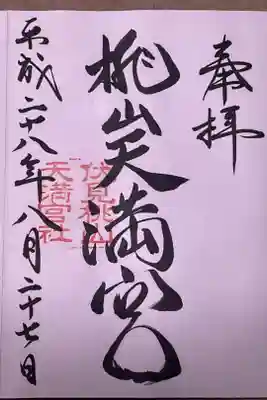 奉拝
桃山天満宮
伏見桃山
天満宮社
平成二十八年八月二十七日